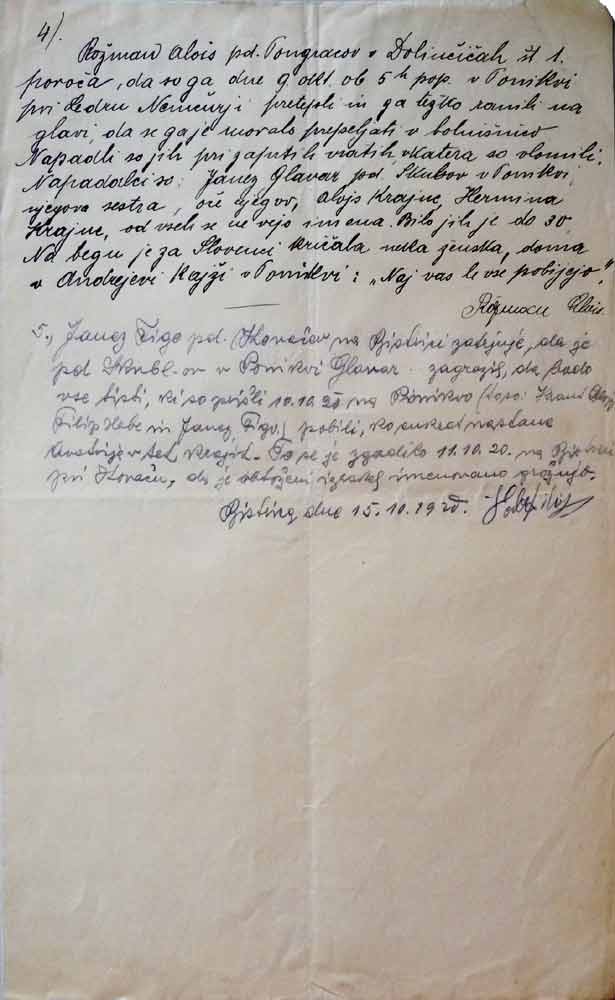 4).
Rožman Alois pd. Pongracov v Dolinčičah št 1.
poroča, da so ga dne 9. okt. ob 5h pop. v Ponikvi
pri Pedru Nemčurji pretepli in ga težko ranili na
glavi, da se ga je moralo prepeljati v bolnišnico
Napadli so jih pri zaprtih vratih v katera so vlomili.
Napadalci so: Janez Glavar pd. Skubov v Ponikvi,
njegova sestra, oče njegov, Alojs Krajnc, Hermina
Krajnc, od vseh se ne vejo imena. Bilo jih je do 30
Na begu je za Slovenci kričala neka ženska, doma
v Andrejevi Kajži v Ponikvi: „Naj vas le vse pobijejo."
Rožman Alois
5., Janez Figo pd. Kovačev na Bistrici zatrjuje, da je
pd Skubl-ov v Ponikvi Glavar zagrozil, da bodo
vse tisti, ki so prišli 10.10.20 na Ponikvo
Filip Hobe in Janez Figo) pobili, ko enkrat nastane
Avstrija v teh krajih. To se je zgodilo 11.10.20. na Bistrici
pri Kovaču, da je obtoženi izrekel imenovano grožnjo.
Bistrica dne 15.10.1920.